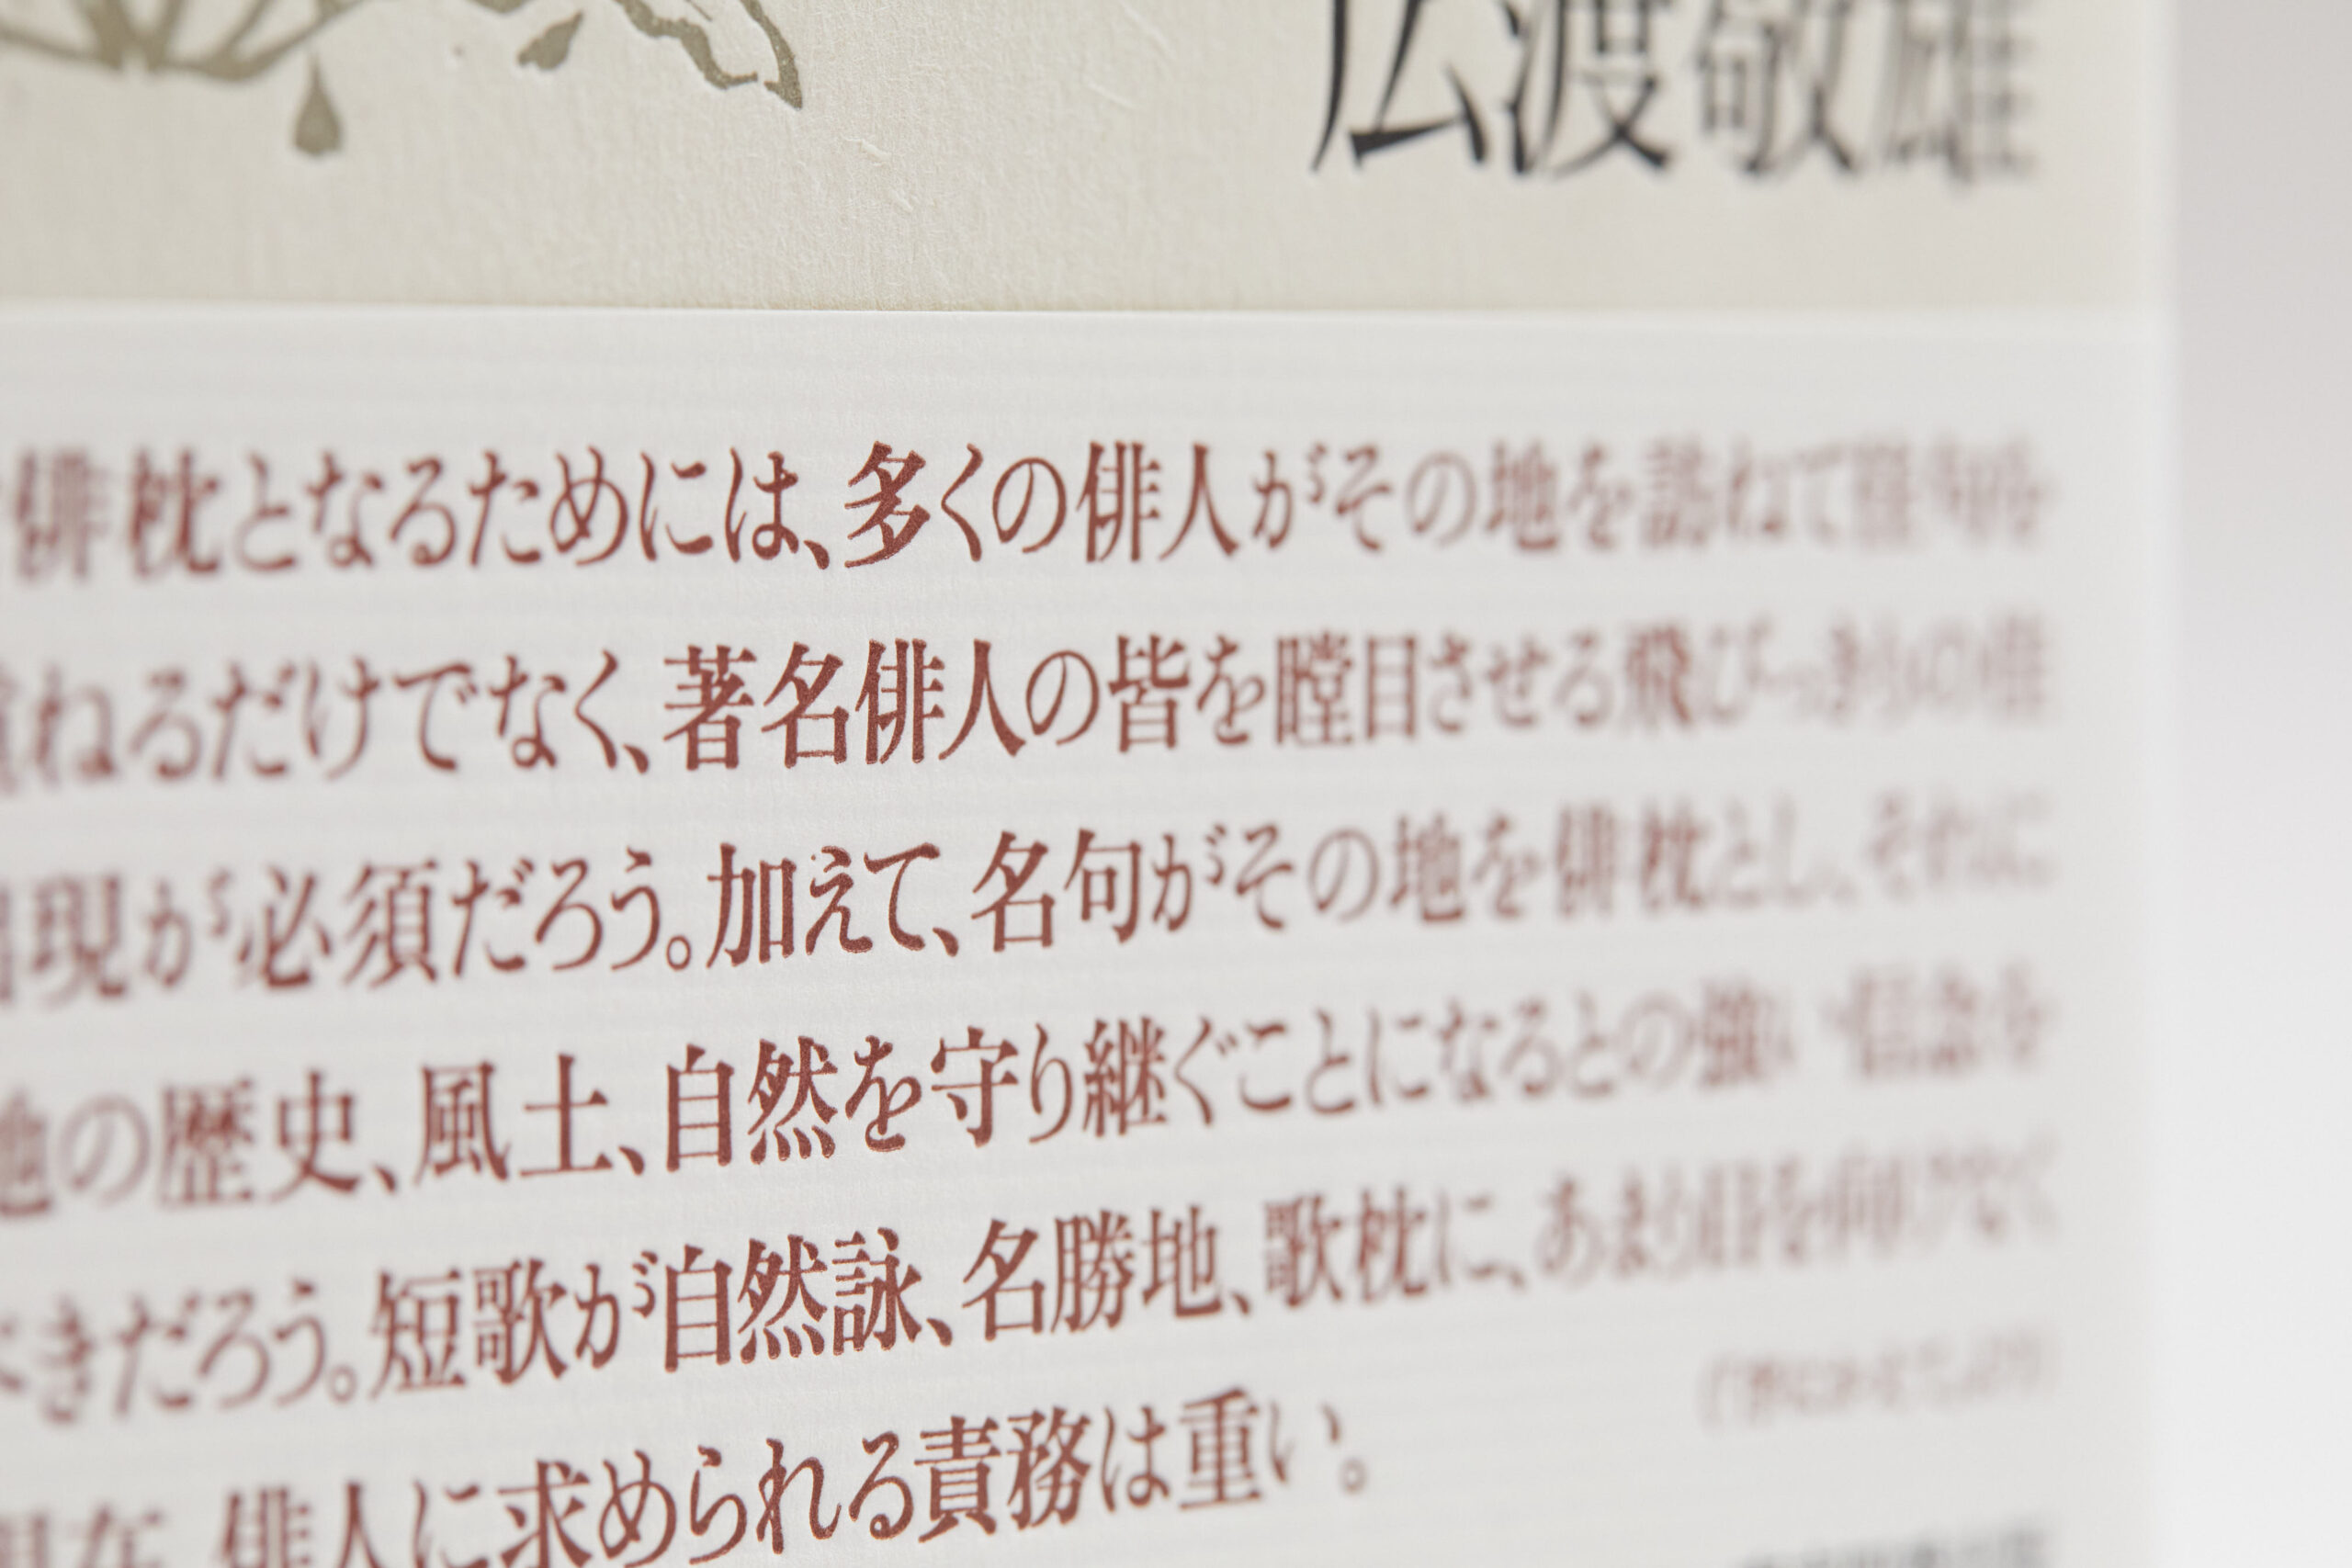 広渡敬雄
俳枕となるためには、多くの俳人がその地を訪ねて俳句を
重ねるだけでなく、著名俳人の皆を瞠目させる飛びっきりの
出現が必須だろう。加えて、名句がその地を俳枕とし、それに
地の歴史、風土、自然を守り継ぐことになるとの強い信念を
べきだろう。短歌が自然詠、名勝地、歌枕に、あまり目を向けなく
現在、俳人に求められる責務は重い。